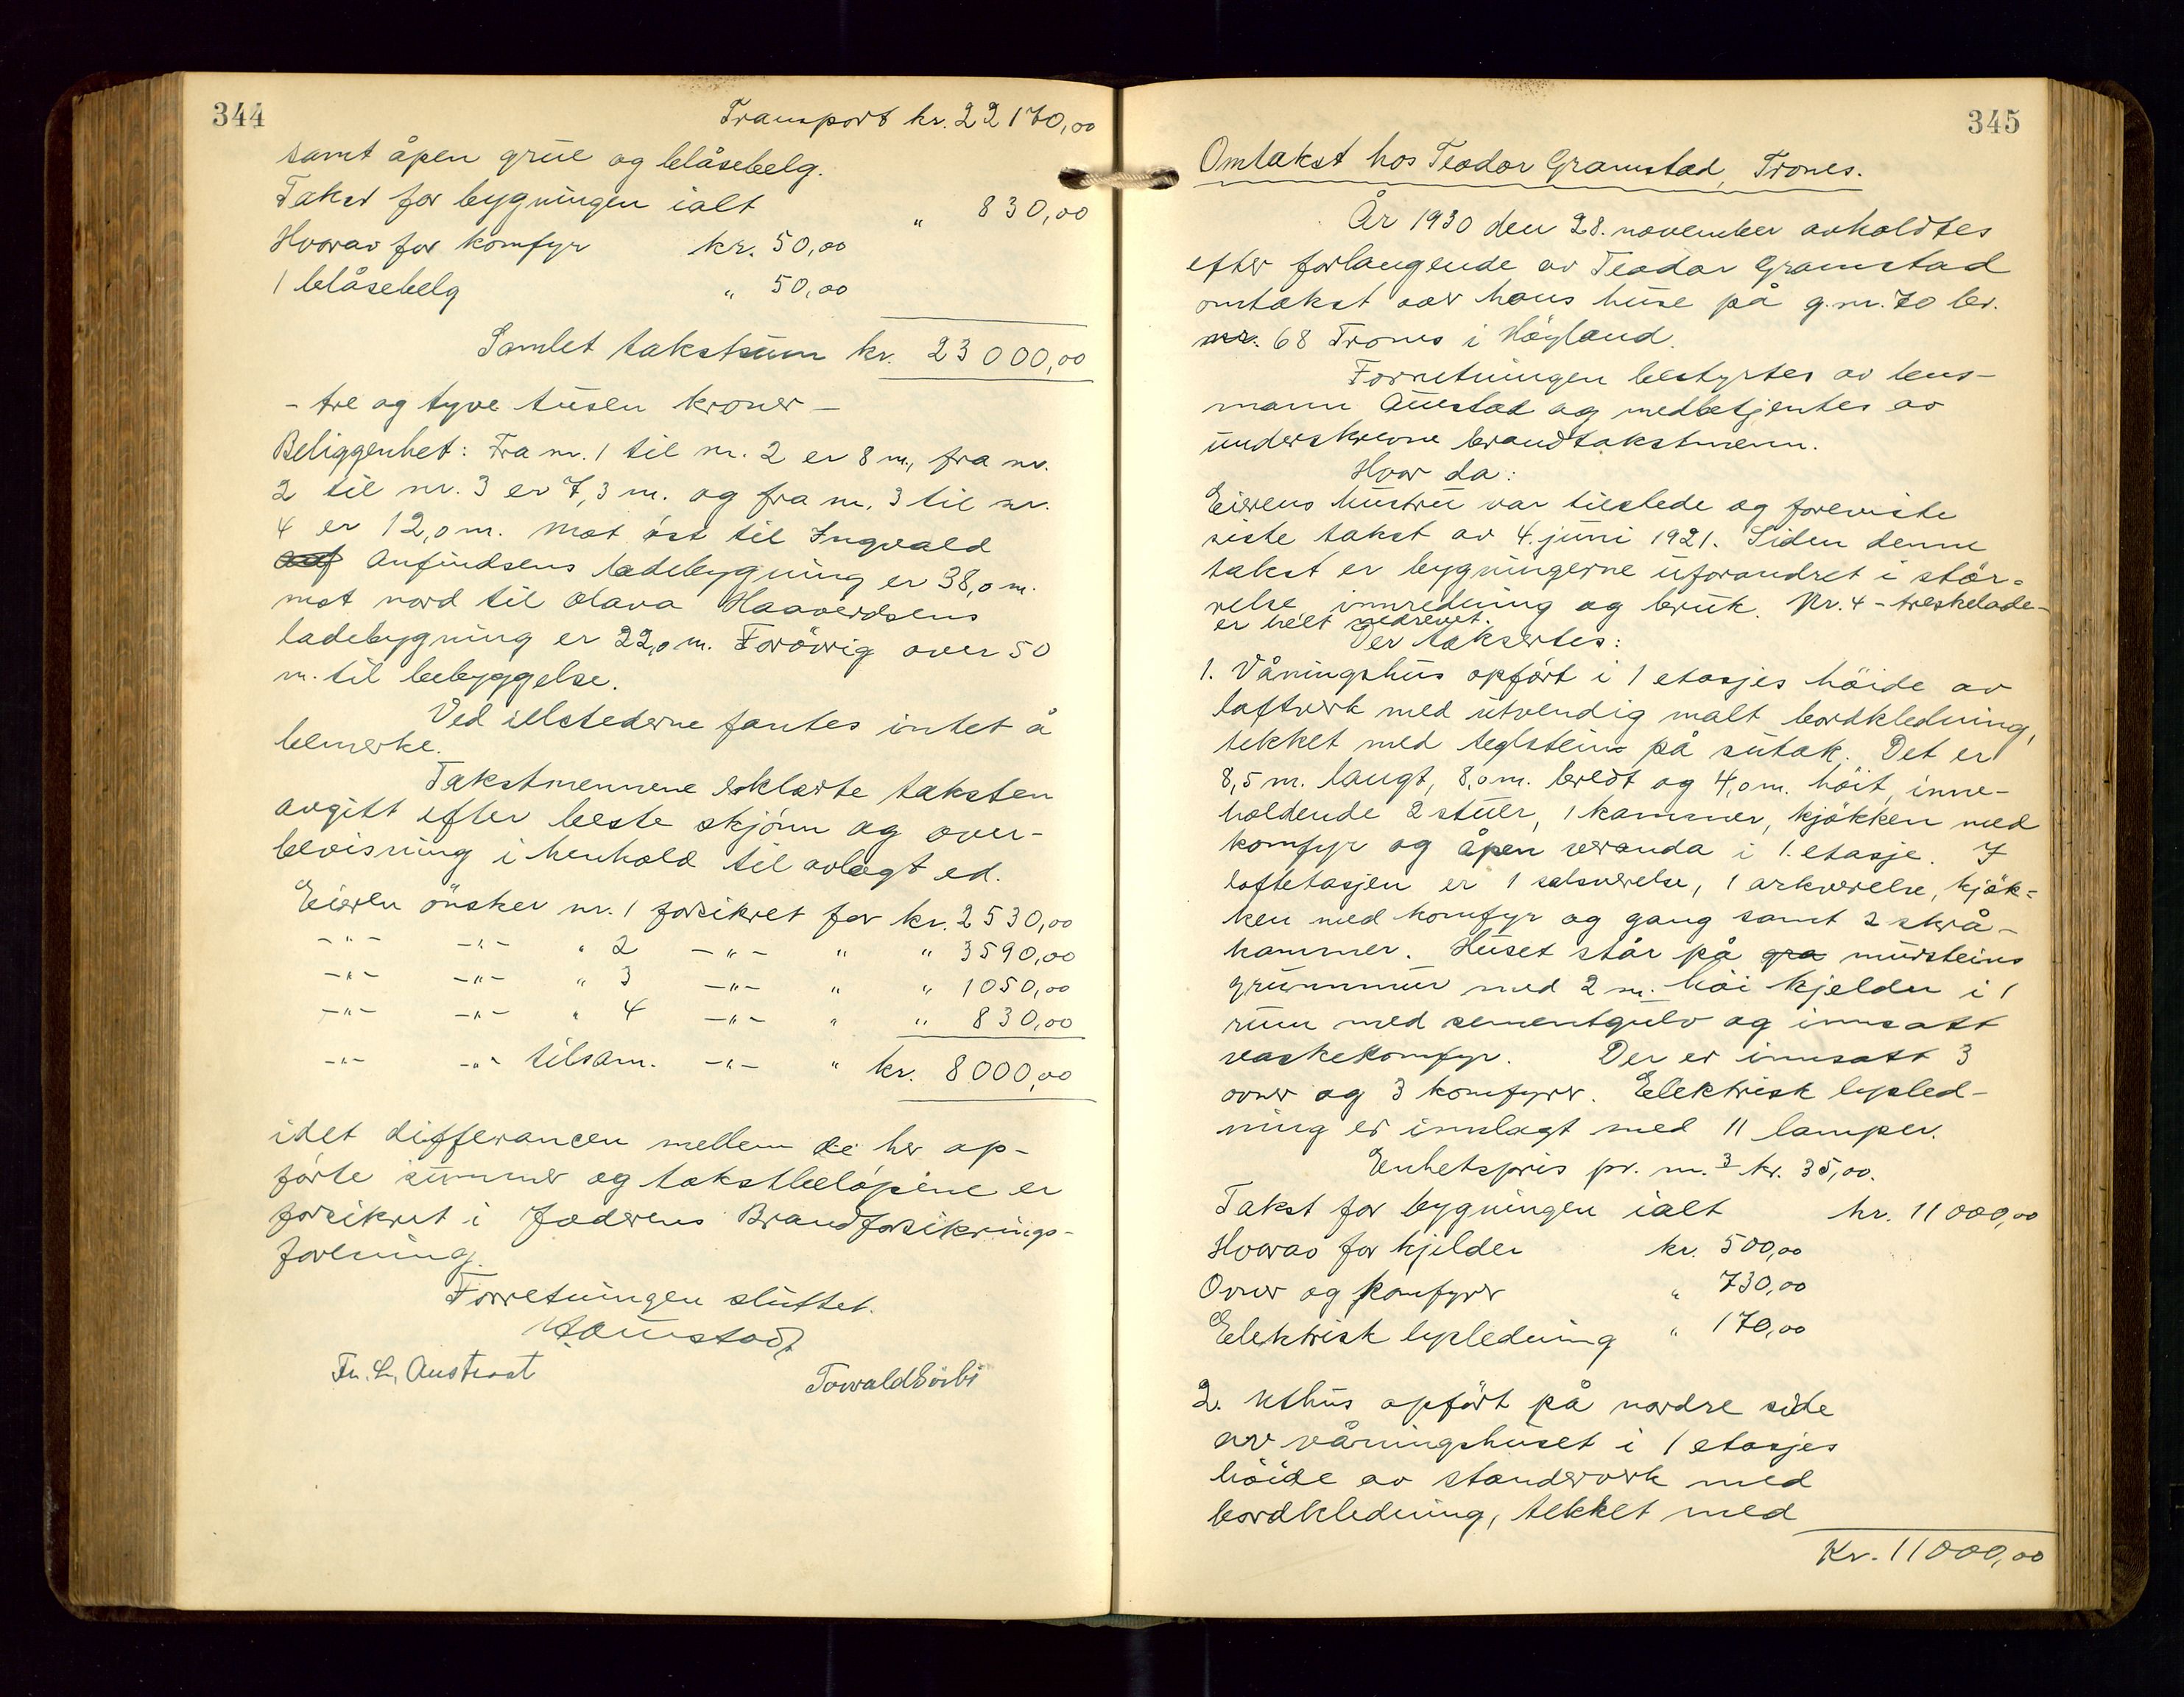 344
Transport kr. 22170,00
samt åpen grue og blåsebelg.
Takst for bygningen ialt " 830,00
Hvorav for komfyr kr. 50,00
1 blåsebelg " 50,00
Samlet takstsum kr. 23000,00
- tre og tyve tusen kroner -
Beliggenhet: Fra nr. 1 til nr. 2 er 8 m., fra nr.
2 til nr. 3 er 7,3 m. og fra nr. 3 til nr.
4 er 12,0 m. Mot øst til Ingvald
Anfindsens ladebygning er 38,0 m.
mot nord til Olava Haaverdsens
ladebygning er 22,0 m. Forövrig over 50
m. til bebyggelse.
Ved ildstederne fantes intet å
bemerke.
Takstmennene erklærte taksten
avgitt efter beste skjönn og over-
bevisning i henhold til avlagt ed.
Eieren önsker nr. 1 forsikret for kr. 2530,00
-"- -"- " 2 -"- " " 3590,00
-"- -"- " 3 -"- " " 1050,00
-"- -"- " 4 -"- " " 830,00
-"- -"- tilsam. -"- " kr. 8000,00
idet differancen mellem de her op-
förte summer og takstbelöpene er
forsikret i Jæderens Brandforsikrings-
forening.
Forretningen sluttet.
Aaustad
Fr. L. Austraat Torvald Sörbö
345
Omtakst hos Teodor Gramstad, Trones.
År 1930 den 28. november avholdtes
efter forlangende av Teodor Gramstad
omtakst over hans huse på g.nr. 70 br.
nr. 68 Trones i Höyland.
Forretningen bestyrtes av lens-
mann Aaustad og medbetjentes av
underskrevne brandtakstmenn.
Hvor da:
Eierens hustru var tilstede og foreviste
siste takst av 4. juni 1921. Siden denne
takst er bygningerne uforandret i stör-
relse, innredning og bruk. Nr. 4 - treskelade -
er helt nedrevet.
Der taksertes:
1. Våningshus opfört i 1 etasjes höide av
loftverk med utvendig malt bordkledning,
tekket med teglstein på sutak. Det er
8,5 m. langt, 8,0 m. bredt og 4,0 m. höit, inne-
holdende 2 stuer, 1 kammer, kjökken med
komfyr og åpen veranda i 1. etasje. I
loftetasjen er 1 salsværelse, 1 arkværelse, kjök-
ken med komfyr og gang samt 2 skrå-
kammer. Huset står på gra mursteins
grunnmur med 2 m. höi kjelder i 1
rum med sementgulv og innsatt
vaskekomfyr. Der er innsatt 3
ovner og 3 komfyrer. Elektrisk lysled-
ning er innlagt med 11 lamper.
Enhetspris pr. m.3 kr. 35,00.
Takst for bygningen ialt kr. 11000,00
Hvorav for kjelder kr. 500,00
Ovner og komfyrer " 730,00
Elektrisk lysledning " 170,00
2. Uthus opfört på nordre side
av våningshuset i 1 etasjes
höide av standerverk med
bordkledning, tekket med
Kr. 11000,00